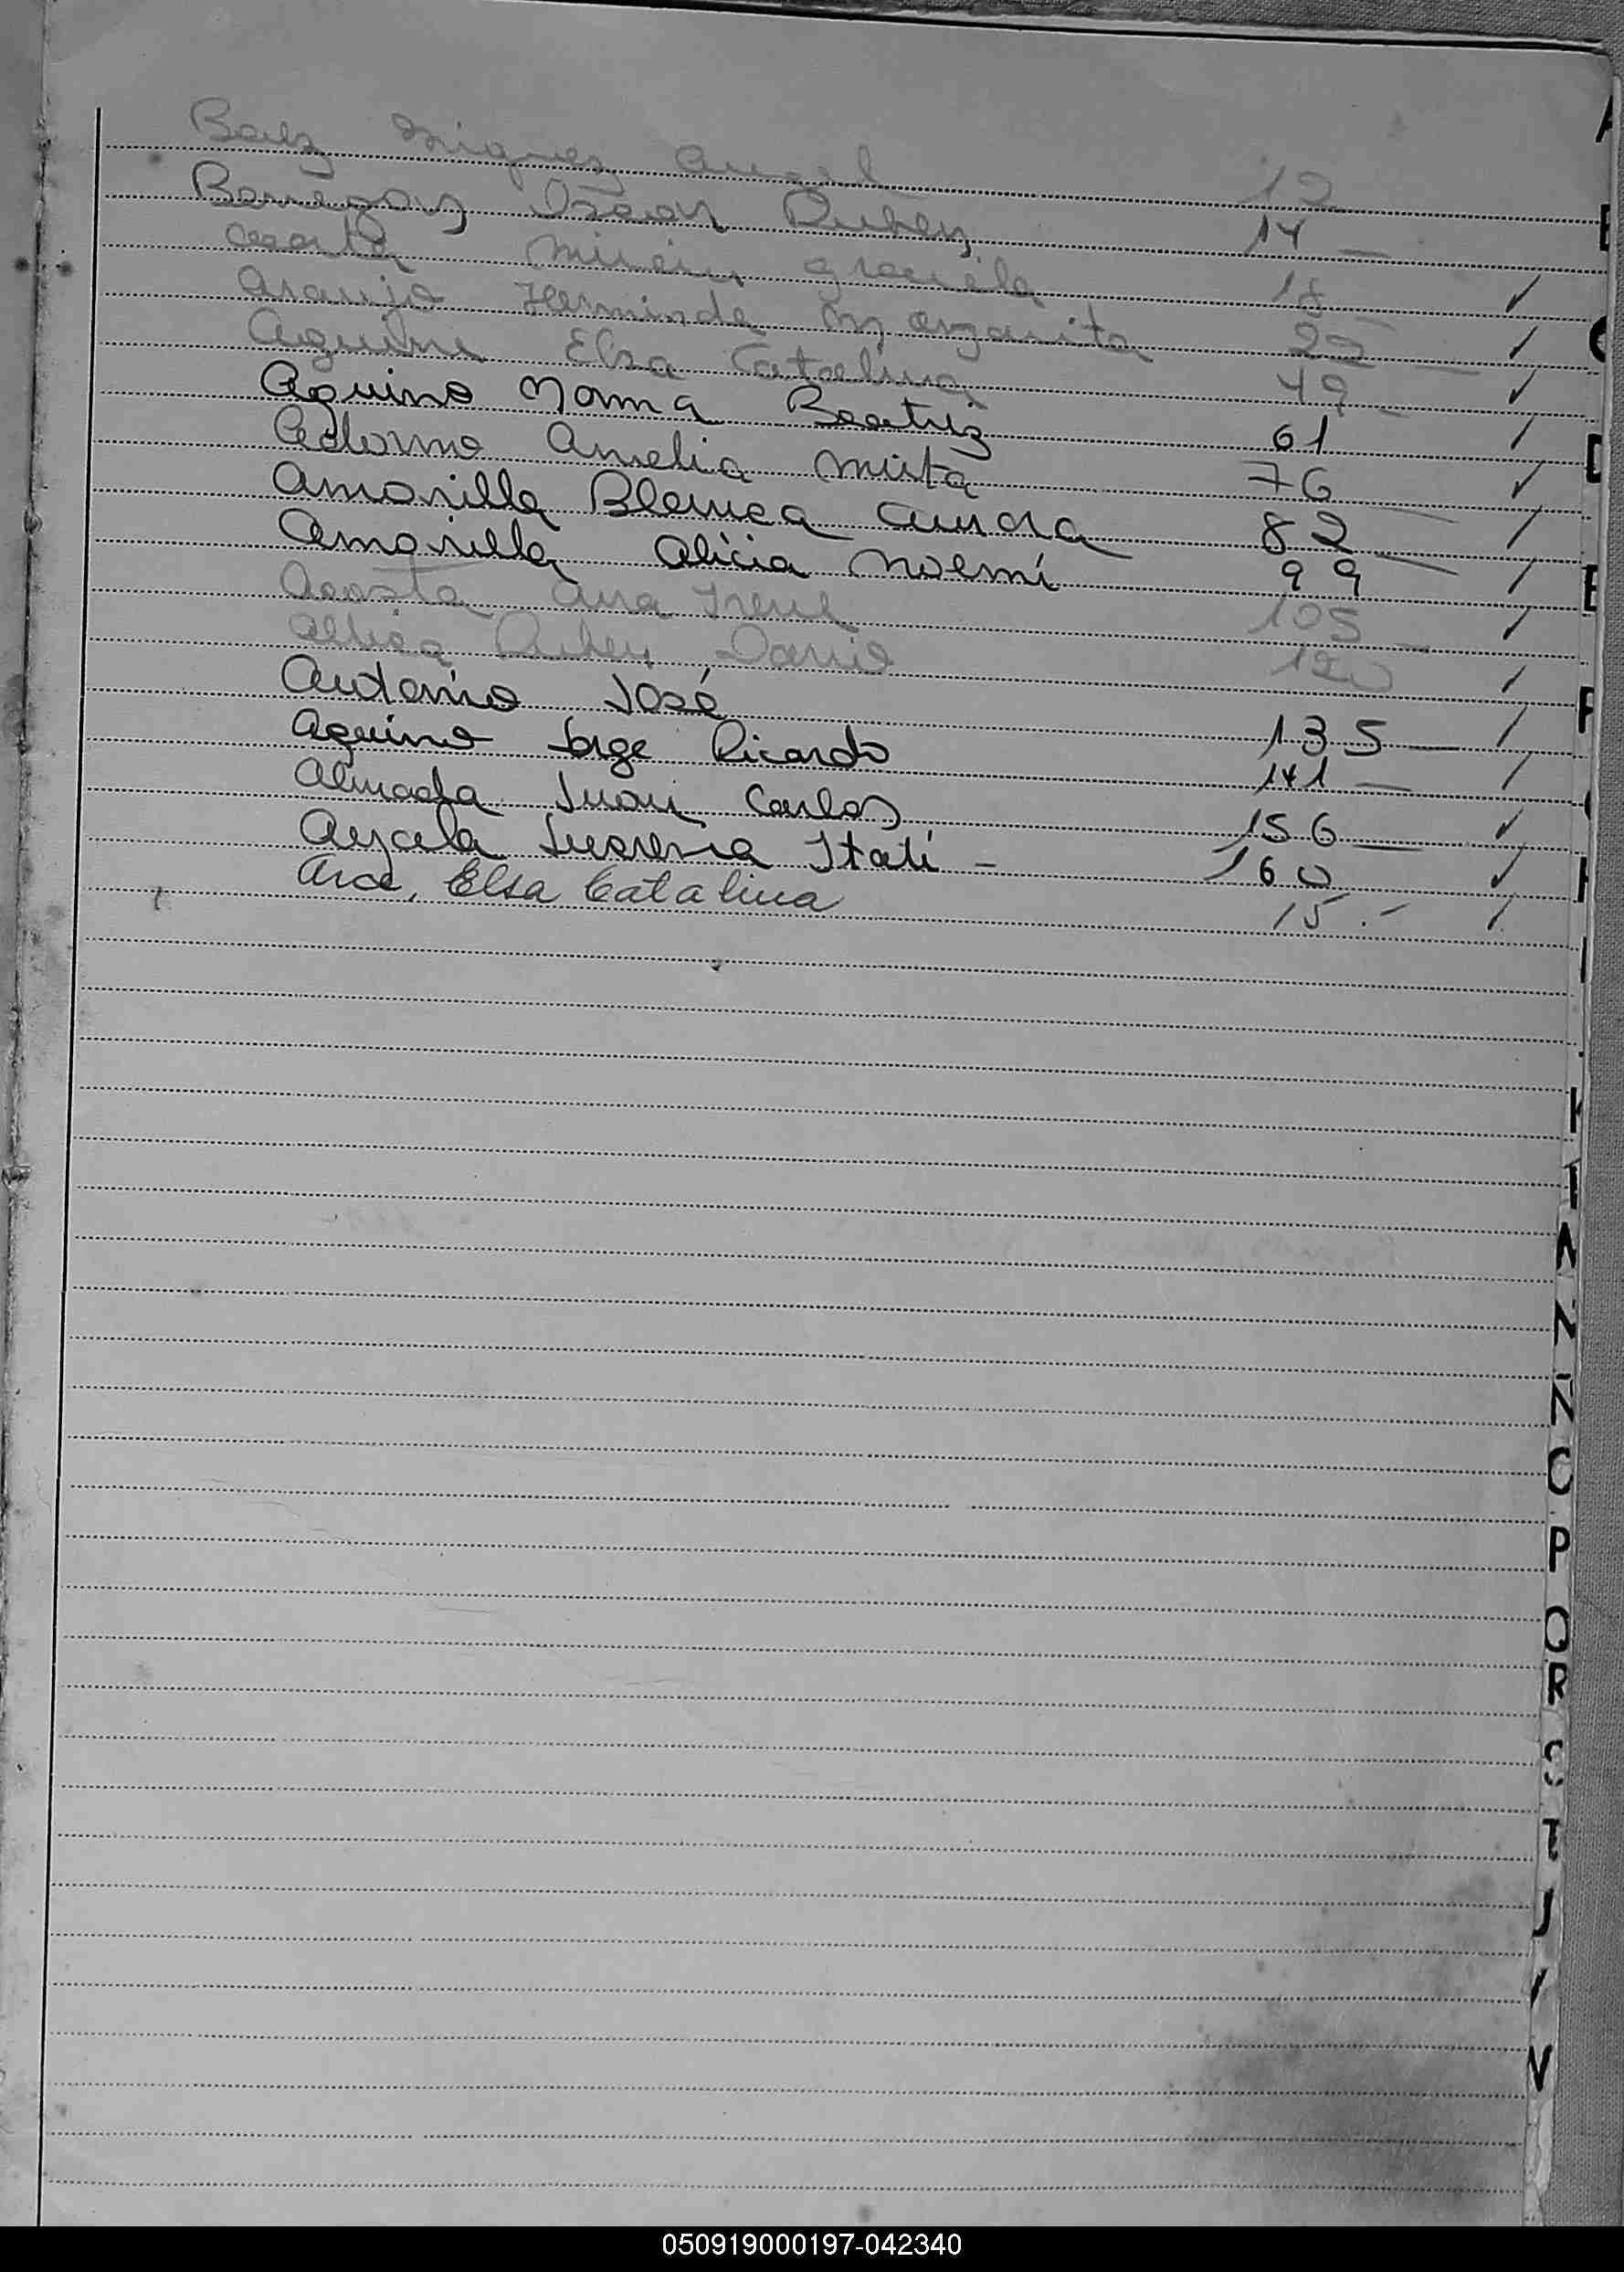 Baez Miguez Angel 12
Barregon Oscar Ruben 14 —
Miriam Graciela 18 — ✓
Araujo Herminda Margarita 25 — ✓
Aguirre Elsa Catalina 49 — ✓
Aquino Norma Beatriz 61 ✓
Adorno Amelia Mirta 76 ✓
Amarilla Blanca Aurora 82 — ✓
Amarilla Alicia Noemí 99 ✓
Acosta Ana Irene 105 — ✓
Ruben Dario 120 ✓
Antonio José 135 — ✓
Aquino Jorge Ricardo 141 — ✓
Almada Juan Carlos 156 — ✓
Ayala Itatí - 160 ✓
Arce, Elsa Catalina 15.- ✓
A
B
C
D
E
F
H
I
N
Ñ
O
P
Q
R
S
T
V
050919000197-042340